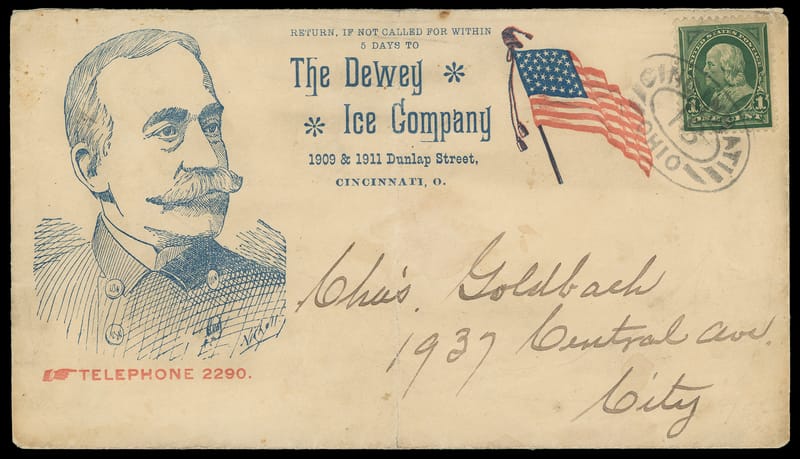 RETURN, IF NOT CALLED FOR WITHIN
5 DAYS TO
The Dewey
Ice Company
1909 & 1911 Dunlap Street,
CINCINNATI, O.
UNITED STATES POSTAGE
1 1
ONE CENT
CINCINNATI OHIO
Chas. Goldbach
1937 Central Ave.
City
TELEPHONE 2290.